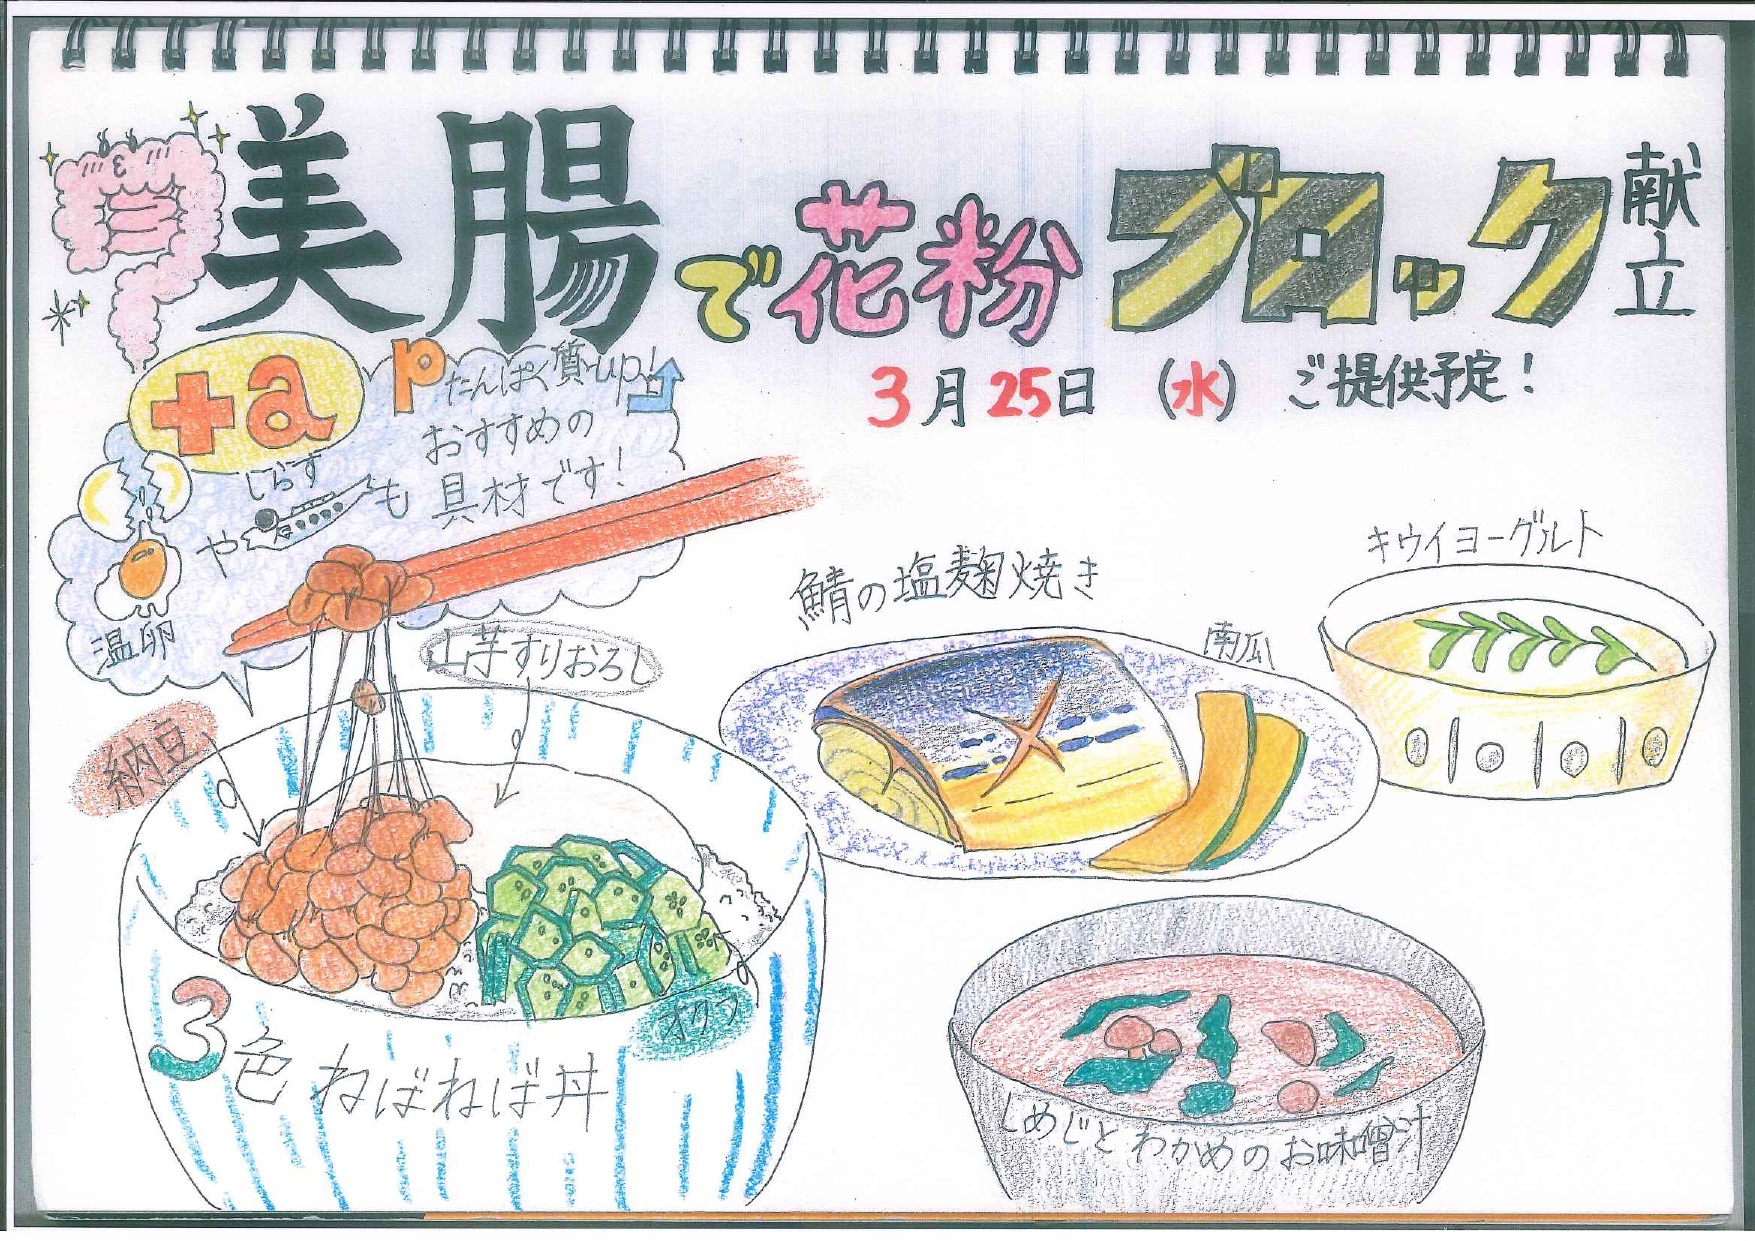 美腸で花粉ブロック献立
3月25日(水) ご提供予定!
+a
pたんぱく質up!
おすすめの
具材です!
しらす
や
も
温卵
納豆
山芋すりおろし
オクラ
3色ねばねば丼
鯖の塩麹焼き
南瓜
キウイヨーグルト
しめじとわかめのお味噌汁